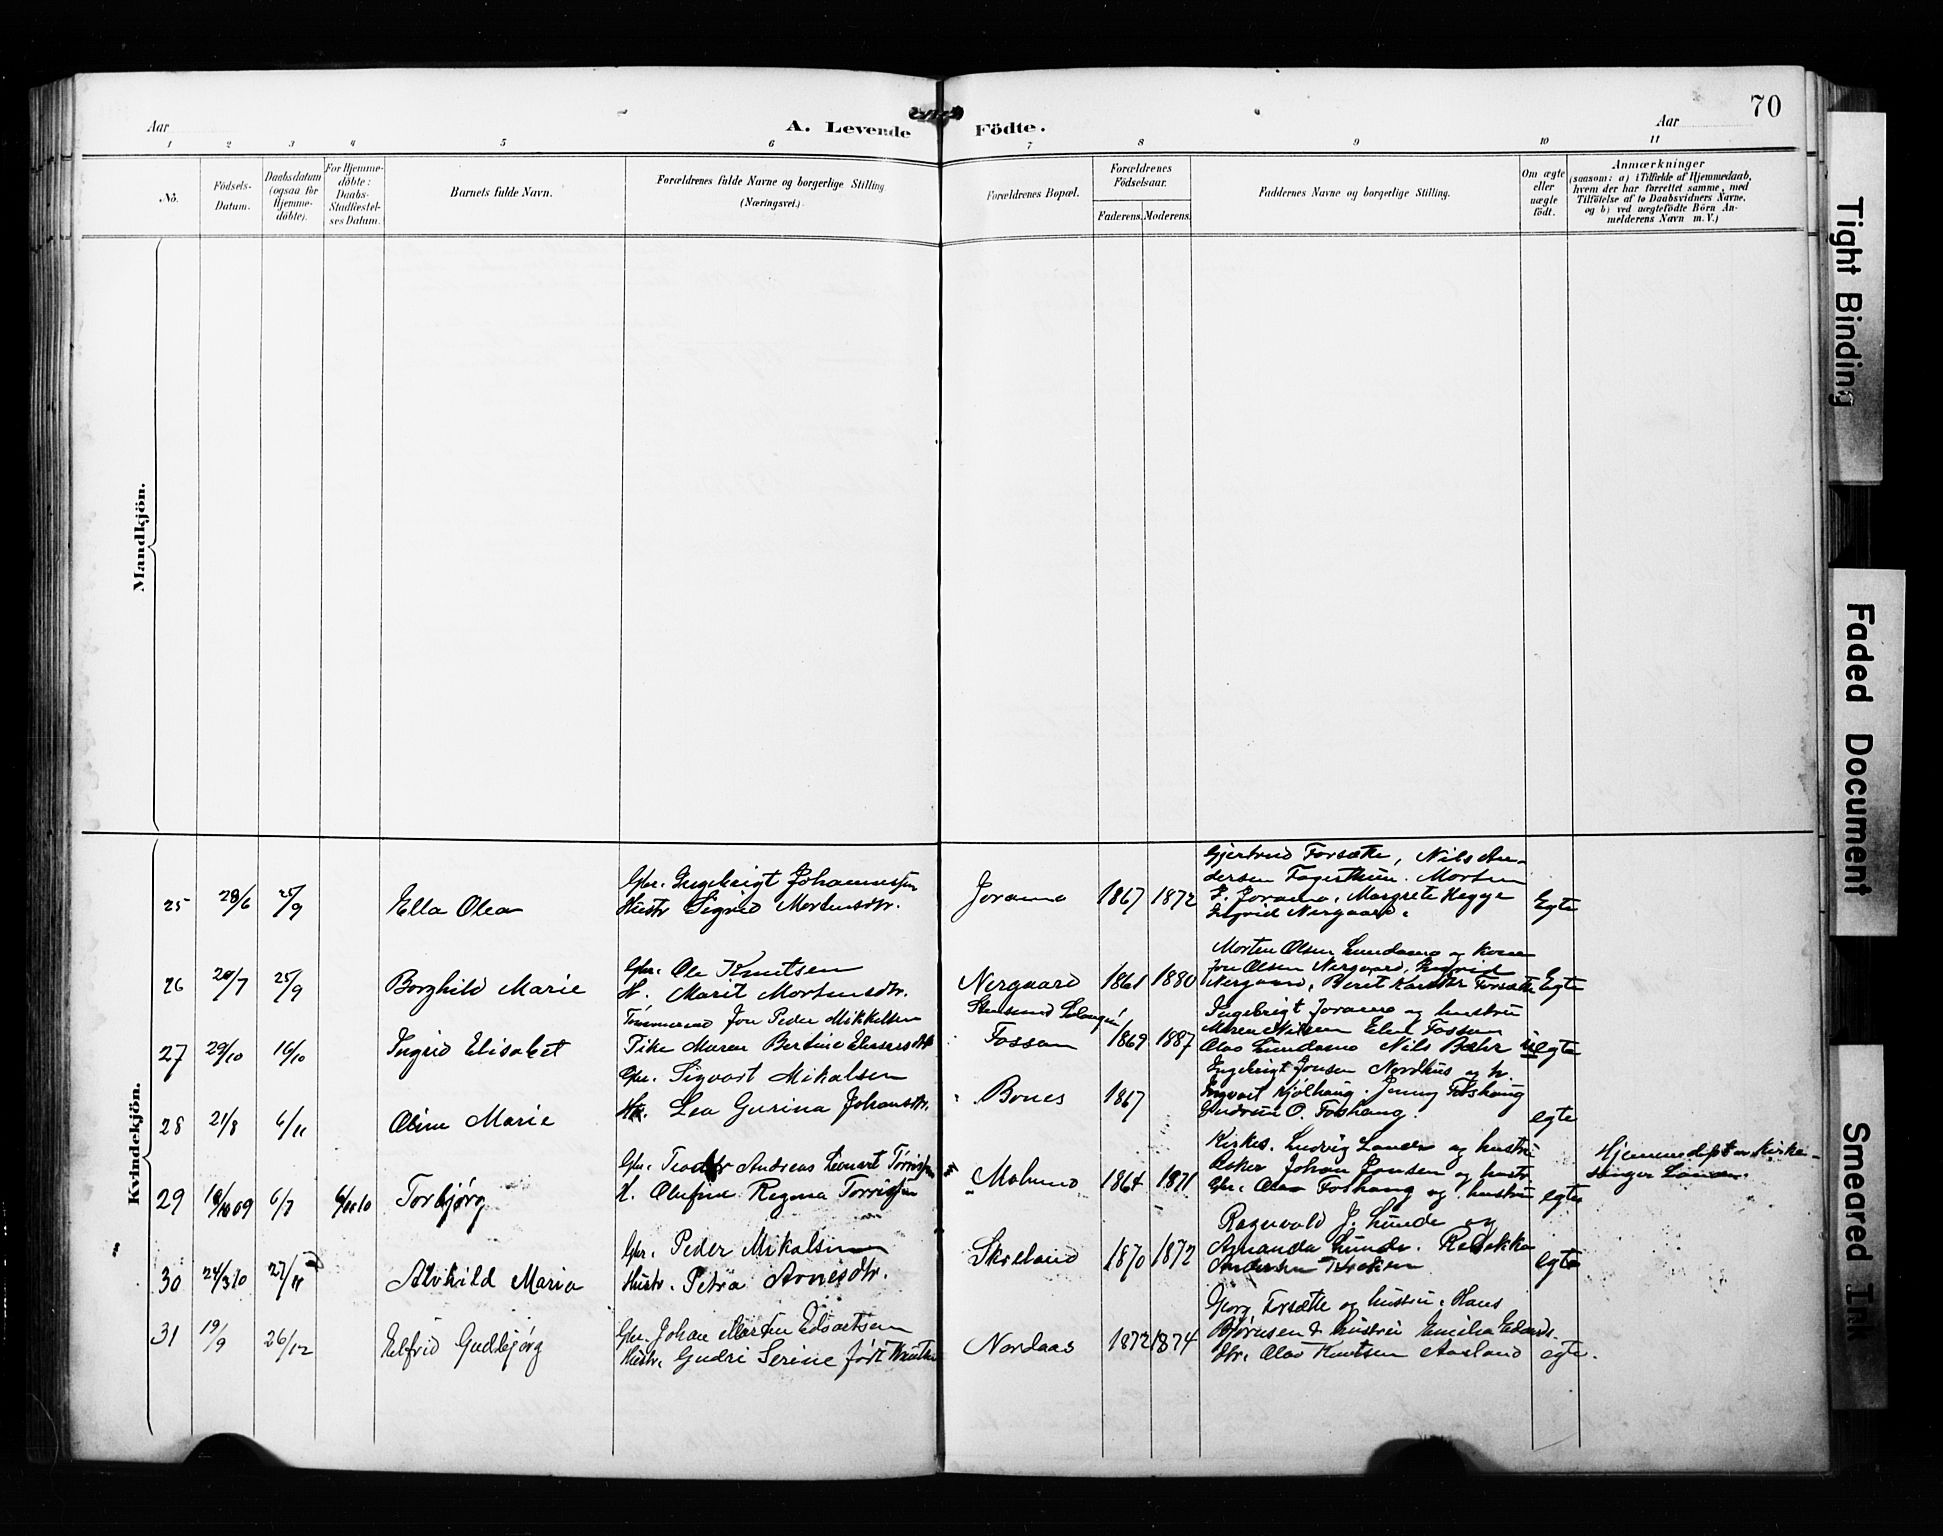 70
Aar
A. Levende
Födte.
Aar
1 2 3 4 5 6 7 8 9 10 11
No.
Födsels-
Datum.
Daabsdatum
(ogsaa for
Hjemme-
döbte).
For Hjemme-
döbte:
Daabs-
Stadfæstel-
ses Datum.
Barnets fulde Navn.
Forældrenes fulde Navne og borgerlige Stilling
(Næringsvei.)
Forældrenes Bopæl.
Forældrenes
Födselsaar.
Faderens. Moderens.
Faddernes Navne og borgerlige Stilling.
Om ægte
eller
uægte
födt.
Anmærkninger
(saasom: a) i Tilfælde af Hjemmedaab,
hvem der har forrettet samme, med
Tilföielse af to Daabsvidners Navne,
og b) ved uægtefödte Börn An-
melderens Navn m. V.)
Mandkjön.
Kvindekjön.
25 28/6 25/9 Ella Olea
Gbr. Ingebrigt Johannessen
Hustr Sigrid Mortensdtr.
Joramo 1867 1872
Gjertrud Forsætte, Nils An-
dersen Fagerthun. Morten
J. Joramo, Margrete Hegge
Ingrid Nergaard.
Egte
26 20/7 25/9 Borghild Marie
Gbr. Ole Knutsen
H. Marit Mortensdtr.
Nergaard 1861 1880
Morten Olsen Lundamo og kone
Jon Olsen Nergaard, Ingrid
Nergaard, Berit Forsætte
Egte
27 29/10 16/10 Ingrid Elisabet
Jon Peder Mikkelsen
Pike Maren Bertine
Fossan 1869 1887
Ingebrigt Joramo og hustru
Maren Nilsen Elen Fossan
Olav Lundamo Nils Bæhr
uegte
28 21/8 6/11 Oline Marie
Gbr. Sigvart Mikalsen
H. Lea Gurina Johansdtr.
Bones 1867
Ingebrigt Jonsen Nordhus og h.
Ingvart Kjølhaug. Jenny Foshaug
Gudrun O. Foshaug.
egte
29 6/7 Torbjørg
Gbr. Andreas Lenart
H. Olufine Regina Torrissen
Moland 1864 1871
Kirkes. Ludvig Lande og hustru
Johan Jonsen og hustr
Gbr. Olav Foshaug og hustru
egte
Hjemmedøpt av Kirke-
sanger Lande.
30 24/3 10 27/11 Alvhild Maria
Gbr. Peder Mikalsen
Hustr. Petra Arnesdtr.
1870 1872
Ragnvald J. Lunde og
Amanda Lunde. Rebekka
Andersen
egte
31 19/9 26/12 Elfrid Gudbjørg
Gbr. Johan Martin Edvartsen
Hustr. Gudri Serine født
Nordaas 1872 1874
Georg Forsætte og hustru. Hans
Bjørnsen & hustru Emilie Edvards-
dtr. Olav Knutsen Aasland
egte.
Tight Binding
Faded Document
Smeared Ink